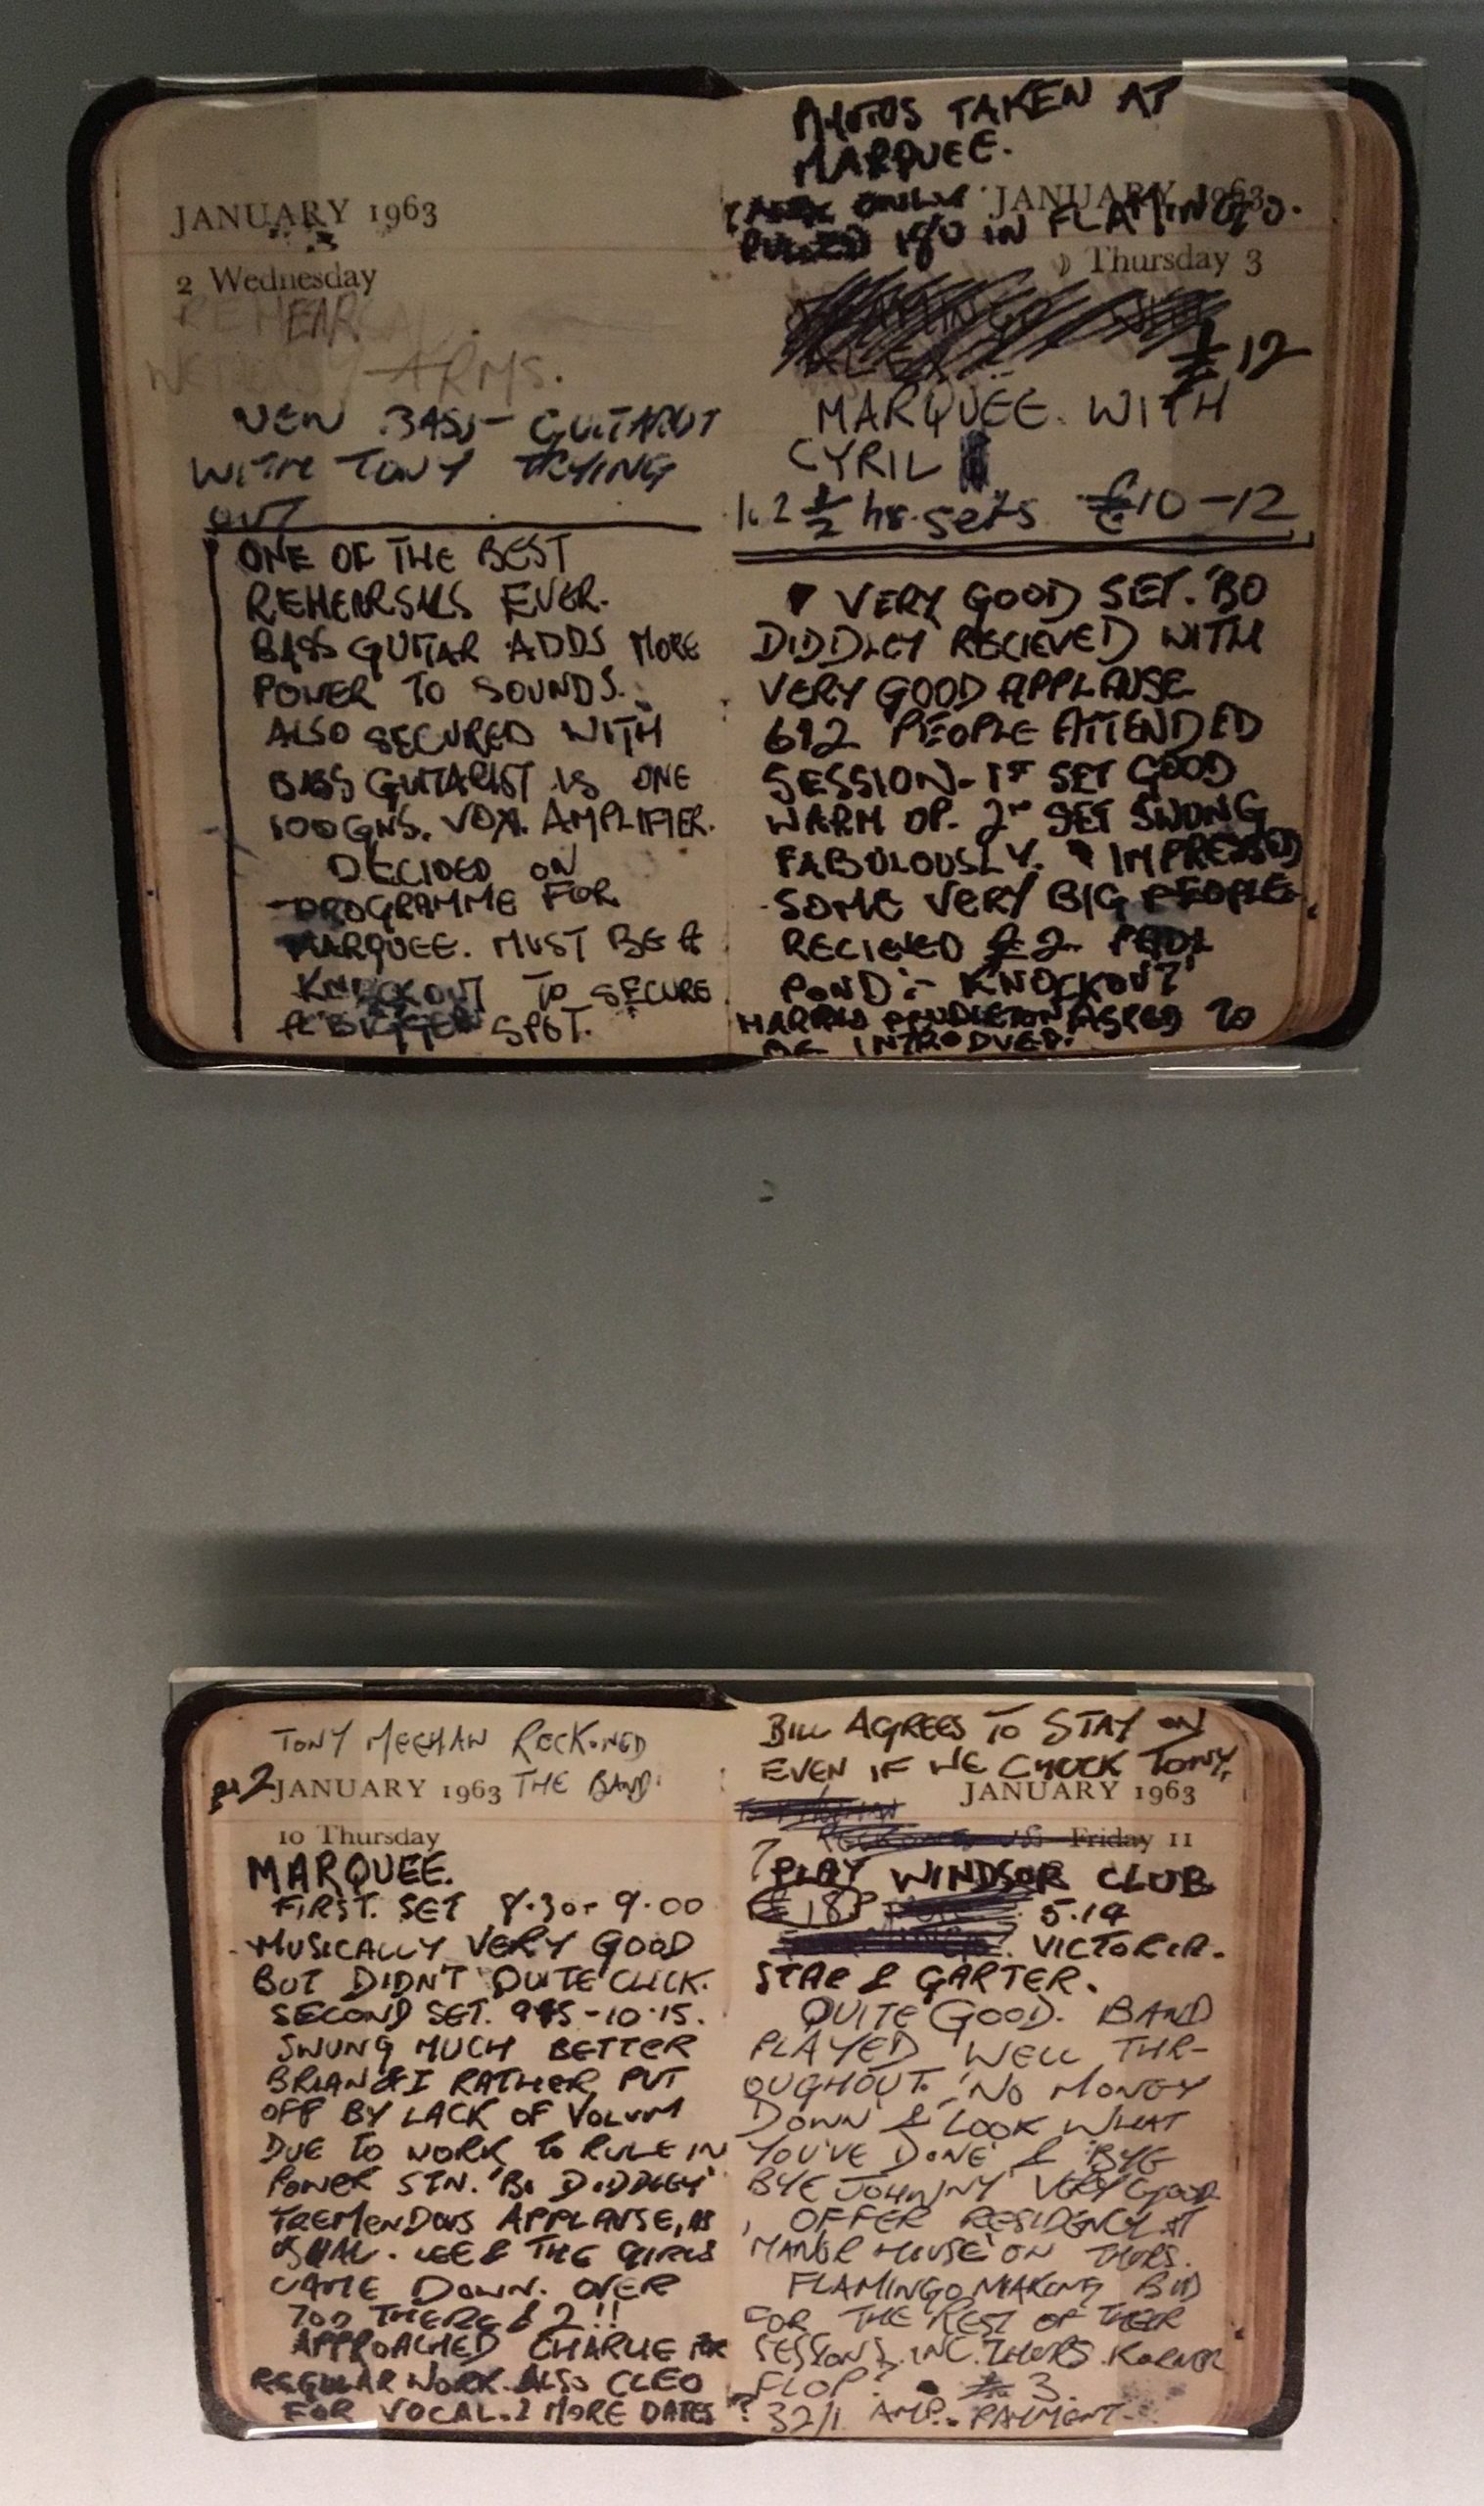 JANUARY 1963
2 Wednesday
REHEARSAL
ARMS.
NEW BASS- GUITARIST
WITH TONY TRYING
OUT
ONE OF THE BEST
REHEARSALS EVER.
BASS GUITAR ADDS MORE
POWER TO SOUNDS.
ALSO SECURED WITH
BASS GUITARIST IS ONE
100GNS. VOX. AMPLIFIER.
DECIDED ON
PROGRAMME FOR
MARQUEE. MUST BE A
KNOCKOUT TO SECURE
A BIGGER SPOT.
PHOTOS TAKEN AT
MARQUEE.
JANUARY 1963
ONLY
180 IN FLAMINGO.
Thursday 3
12
MARQUEE. WITH
CYRIL
2 ½ hr. sets £10-12
VERY GOOD SET. 'BO
DIDDLEY' RECIEVED WITH
VERY GOOD APPLAUSE
612 PEOPLE ATTENDED
SESSION- 1ST SET GOOD
WARM UP. 2ND SET SWUNG
FABULOUSLY. IMPRESSED
SOME VERY BIG PEOPLE.
RECIEVED £2. PAUL
POND:- KNOCKOUT'
HAROLD PENDLETON ASKED TO
BE INTRODUCED.
TONY MEEHAN RECKONED
JANUARY 1963 THE BAND.
10 Thursday
MARQUEE.
FIRST. SET 8.30- 9.00
MUSICALLY VERY GOOD
BUT DIDN'T QUITE CLICK.
SECOND SET. 9.45-10.15.
SWUNG MUCH BETTER
BRIAN & I RATHER PUT
OFF BY LACK OF VOLUM
DUE TO WORK TO RULE IN
POWER STN. 'BO DIDDLEY'
TREMENDOUS APPLAUSE, AS
USUAL. LEE & THE GIRLS
CAME DOWN. OVER
700 THERE £2!!
APPROACHED CHARLIE FOR
REGULAR WORK. ALSO CLEO
FOR VOCAL. 2 MORE DATES
BILL AGREES TO STAY ON
EVEN IF WE CHUCK TONY.
JANUARY 1963
RECKONED US Friday 11
? PLAY WINDSOR CLUB
£18? 5.14
VICTORIA.
STAR & GARTER.
QUITE GOOD. BAND
PLAYED WELL THR-
OUGHOUT. 'NO MONEY
DOWN' & 'LOOK WHAT
YOU'VE DONE' & 'BYE
BYE JOHNNY' VERY GOOD
OFFER RESIDENCY AT
MANOR HOUSE ON THURS.
FLAMINGO MAKING BID
FOR THE REST OF THEIR
SESSIONS. INC. THURS. KORNER
FLOP? £3.
? 32/1 AMP.. PAYMENT.